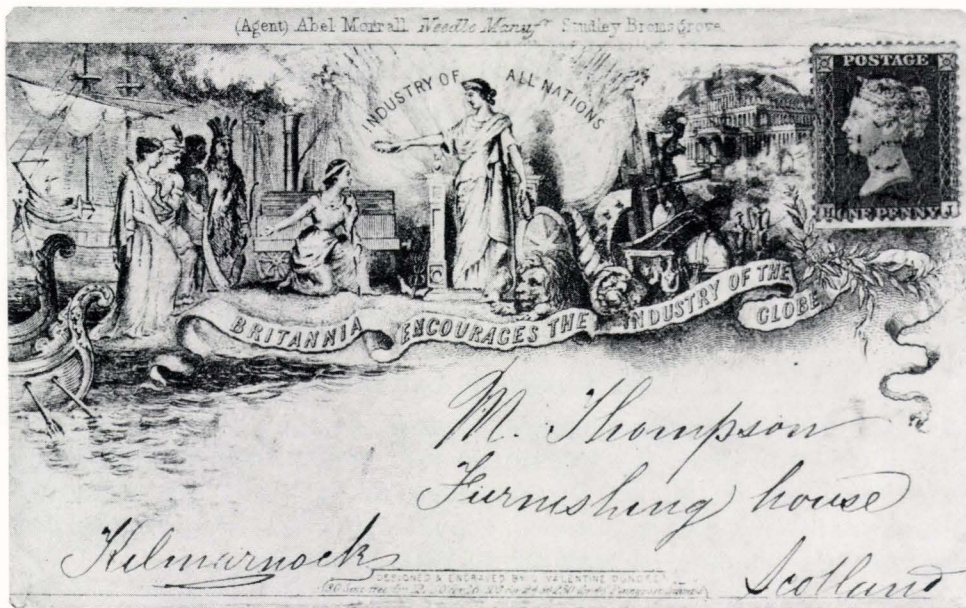 (Agent) Abel Morrall Needle Manufr Studley Bromsgrove
INDUSTRY OF ALL NATIONS
POSTAGE
H ONE PENNY J
BRITANNIA ENCOURAGES THE INDUSTRY OF THE GLOBE
M. Thompson
Furnishing house
Kilmarnock
Scotland
DESIGNED & ENGRAVED BY J. VALENTINE DUNDEE